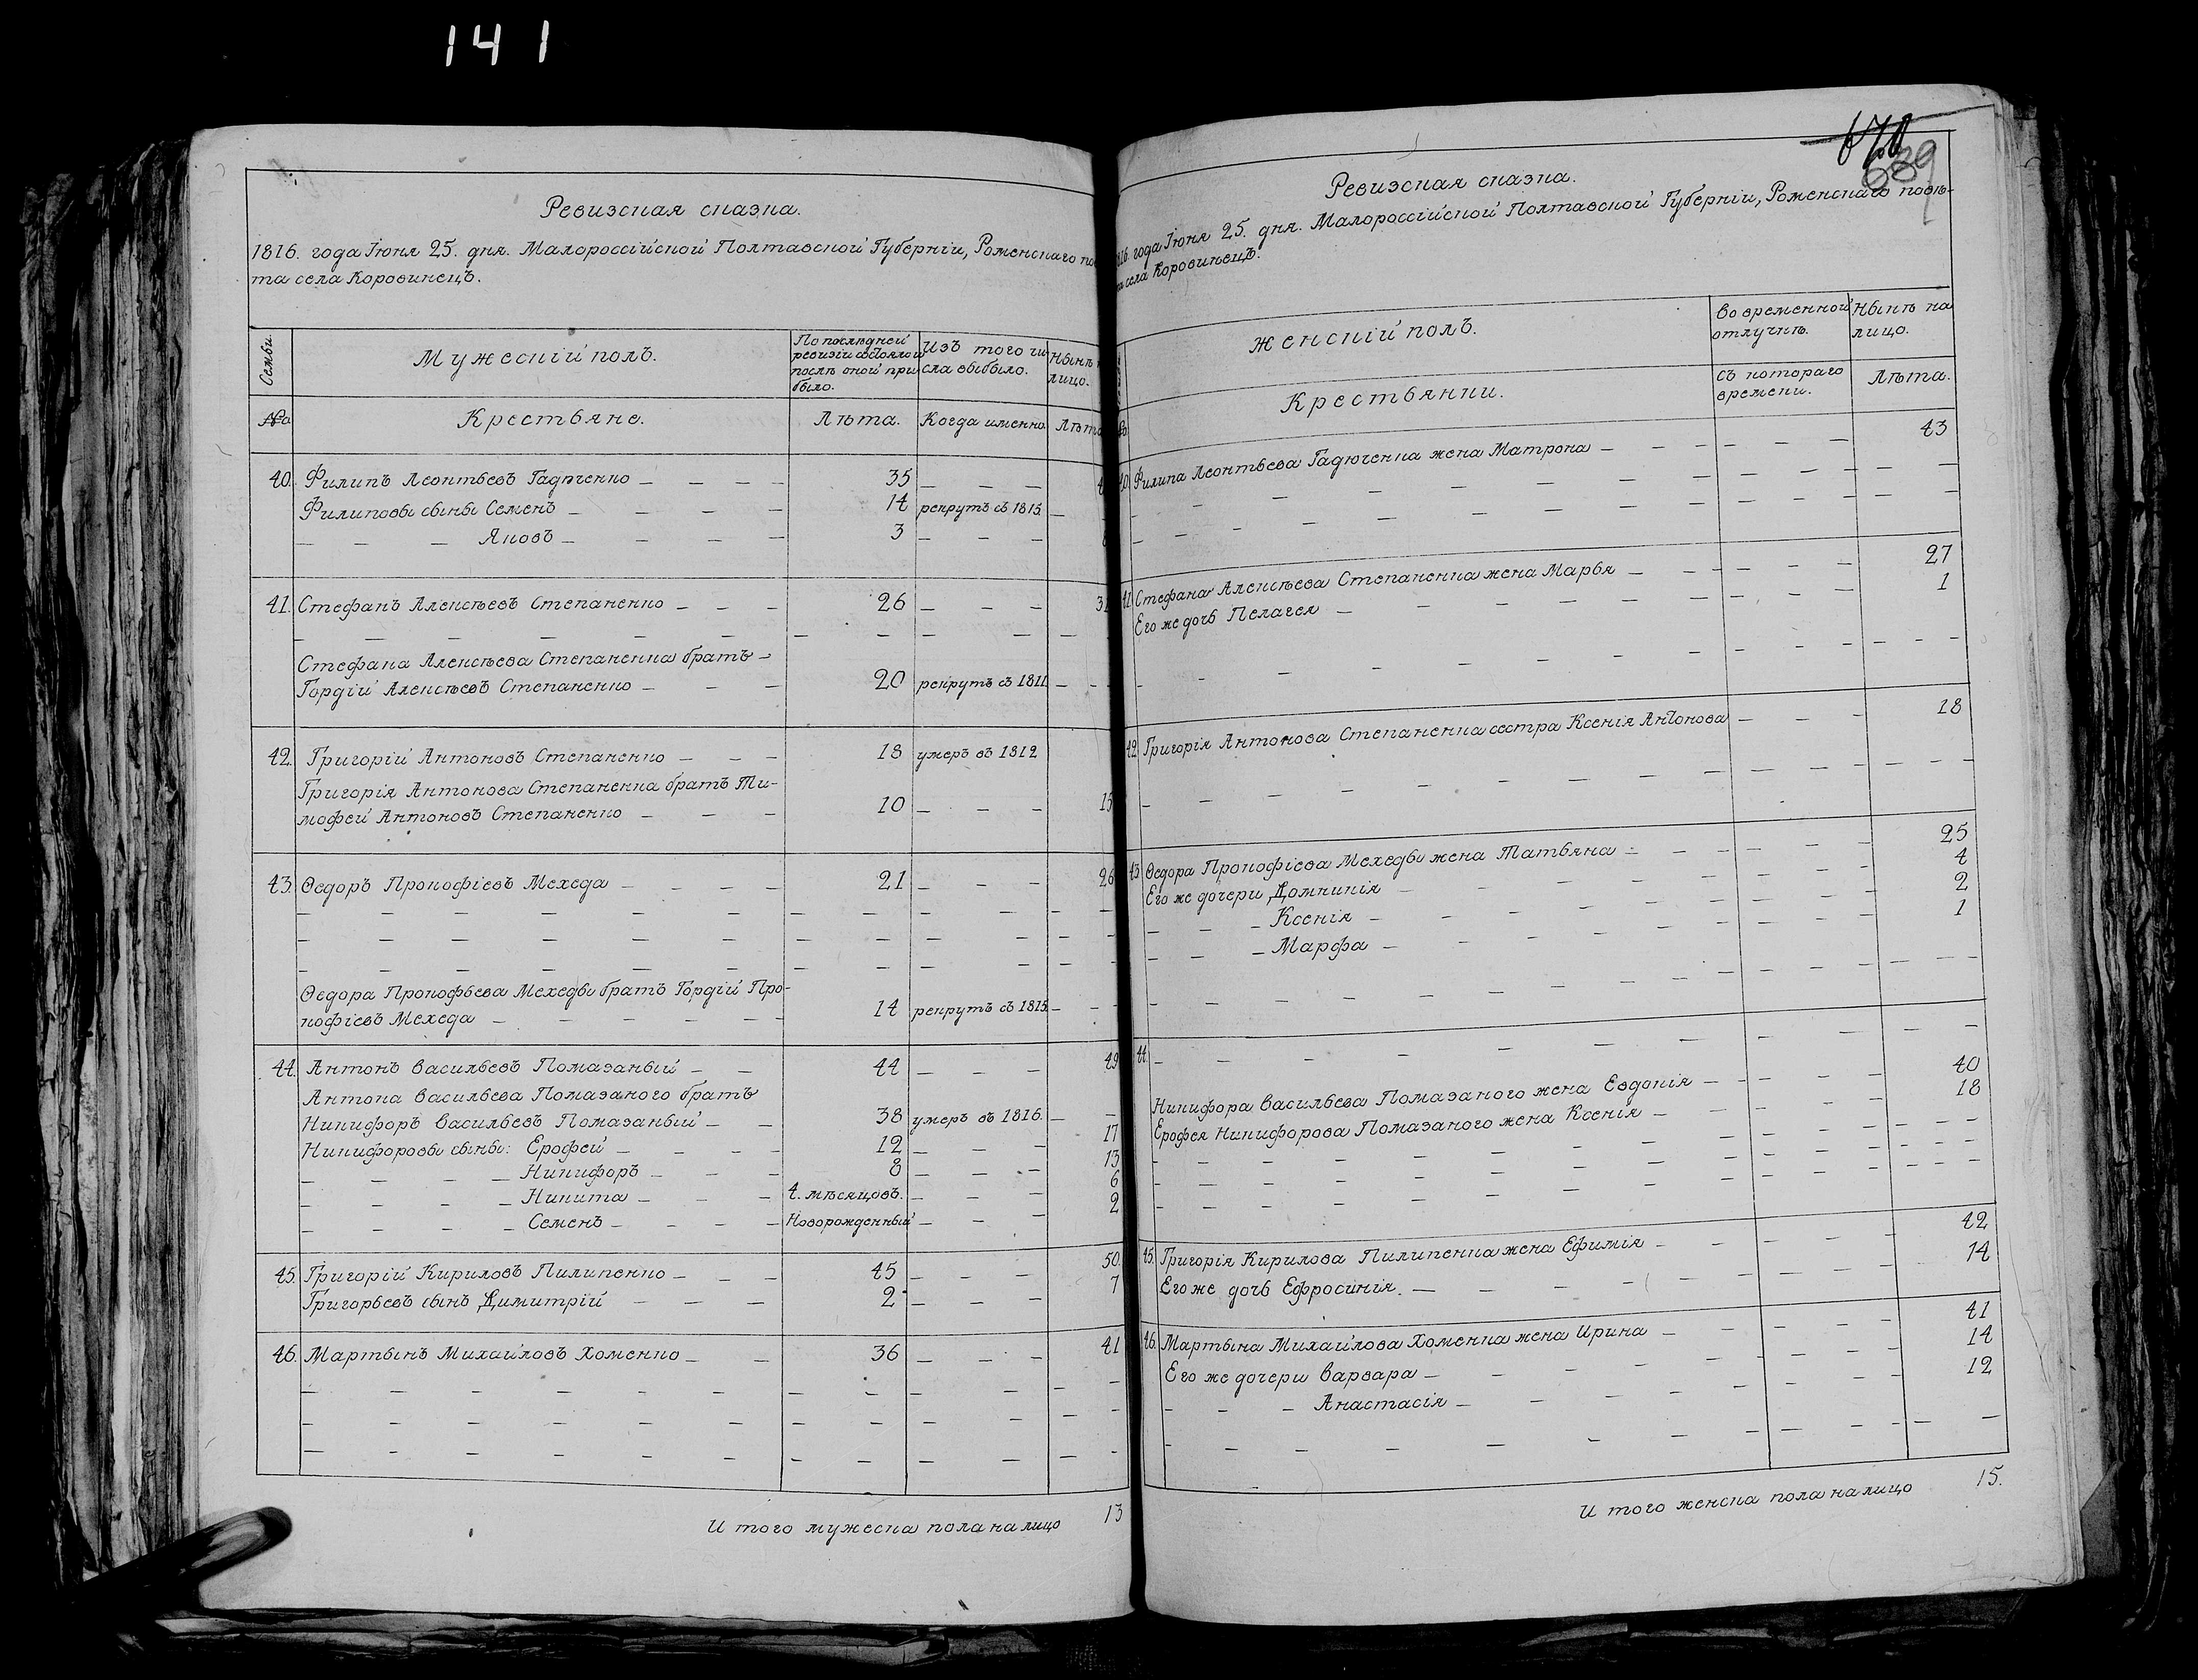 141
Ревизская сказка.
1816. года Іюня 25. дня. Малороссійской Полтавской Губерніи, Роменскаго по
та села Коровинецъ.
Семьи.
Мужескій полъ.
По последней ревизіи состояло и после оной прибыло.
Изъ того числа выбыло.
Нынѣ
лицо.
№
Крестьяне.
Лѣта.
Когда именно
Лѣта
40. Филипъ Леонтьевъ Гадюченко — — — — 35 — — —
Филиповы сыны Семенъ — — — 14 рекрутъ съ 1815. —
— — — Яковъ — — — — 3 — — —
41. Стефанъ Алексѣевъ Степаненко — — — 26 — — — 31
Стефана Алексѣева Степаненка братъ —
Гордій Алексѣевъ Степаненко — — — 20 рекрутъ съ 1811. — —
42. Григорій Антоновъ Степаненко — — — 18 умеръ въ 1812
Григорія Антонова Степаненка братъ Ти-
мофей Антоновъ Степаненко — — — 10 — — — 15
43. Ѳедоръ Прокофіевъ Мехеда — — — — 21 — — — 26
Ѳедора Прокофьева Мехеды братъ Гордій Про-
кофіевъ Мехеда — — — — — 14 рекрутъ съ 1815. — —
44. Антонъ Васильевъ Помазаный — — 44 — — — 49
Антона Васильева Помазаного братъ
Никифоръ Васильевъ Помазаный — — 38 умеръ въ 1816. — —
Никифоровы сыны: Ерофей — — — 12 — — — 17
— — — — Никифоръ — — — 8 — — — 13
— — — — Никита — — — 4. мѣсяцовъ. — — — 6
— — — — Семенъ — — — — Новорожденный — — — 2
45. Григорій Кириловъ Пилипенко — — — 45 — — — 50.
Григорьевъ сынъ Димитрій — — — 2 — — — 7
46. Мартынъ Михайловъ Хоменко — — 36 — — — 41
И того мужеска пола на лицо 13
670
689
Ревизская сказка.
816. года Іюня 25. дня. Малороссійской Полтавской Губерніи, Роменскаго повѣ-
та села Коровинецъ.
Женскій полъ.
Во временной отлучкѣ.
Нынѣ на лицо.
Крестьянки.
Съ котораго времени.
Лѣта.
40. Филипа Леонтьева Гадюченка жена Матрона — — — — — — 43
41. Стефана Алексѣева Степаненка жена Марья — — — — — 27
Его же дочь Пелагея — — — — — — — — 1
42. Григорія Антонова Степаненка сестра Ксенія Антонова — — — 18
43. Ѳедора Прокофіева Мехеды жена Татьяна — — — — — — 25
Его же дочери Домникія — — — — — — — 4
— — — Ксенія — — — — — — — 2
— — — Марфа — — — — — — — 1
44. — — — — — — — — — —
Никифора Васильева Помазаного жена Евдокія — — — — 40
Ерофея Никифорова Помазаного жена Ксенія — — — — 18
45. Григорія Кирилова Пилипенка жена Ефимія — — — — — 42
Его же дочь Ефросинія. — — — — — — — 14
46. Мартына Михайлова Хоменка жена Ирина — — — — — 41
Его же дочери Варвара — — — — — — — 14
— — — Анастасія — — — — — — — 12
И того женска пола на лицо 15.